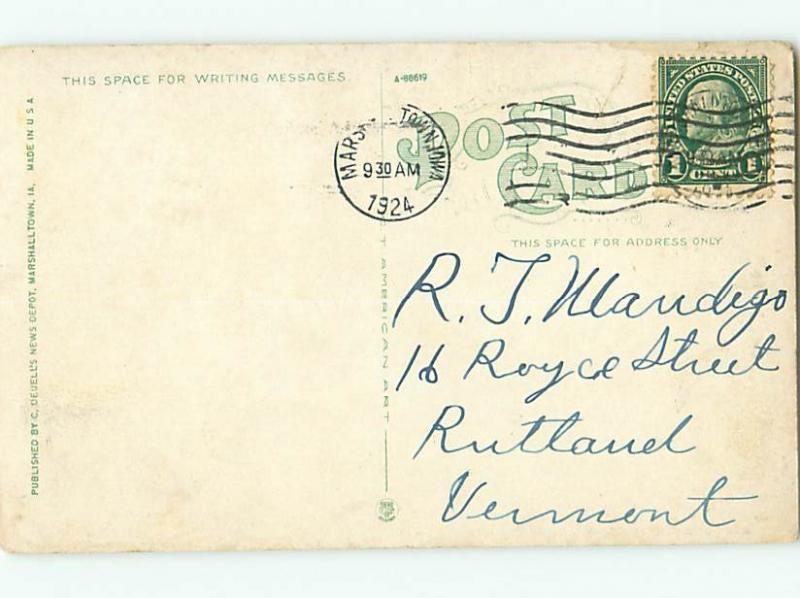 THIS SPACE FOR WRITING MESSAGES.
A-88619
PUBLISHED BY C. DEUELL'S NEWS DEPOT, MARSHALLTOWN, IA. MADE IN U S A
POST CARD
TOWN, IOWA
9 30 AM
1924
UNITED STATES POSTAGE
1 1
THIS SPACE FOR ADDRESS ONLY
AMERICAN ART
R. J. Mandigo
16 Royce Street
Rutland
Vermont